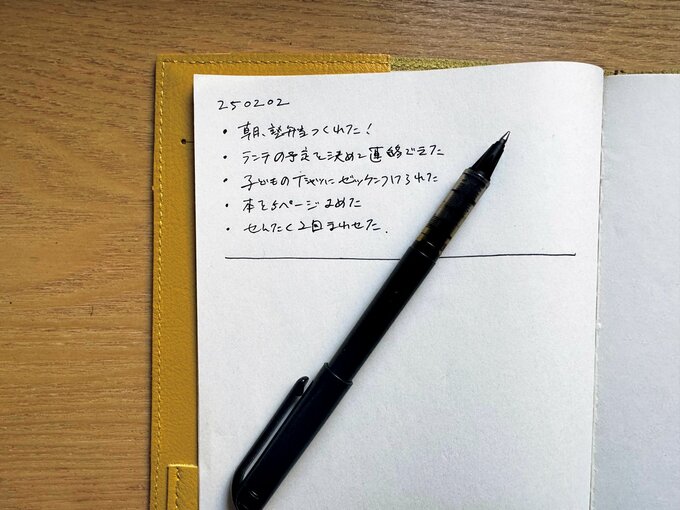 250202
・朝、塾弁当つくれた!
・ランチの予定を決めて連絡できた
・子どものTシャツにゼッケンつけられた
・本を5ページよめた
・せんたく2回まわせた.